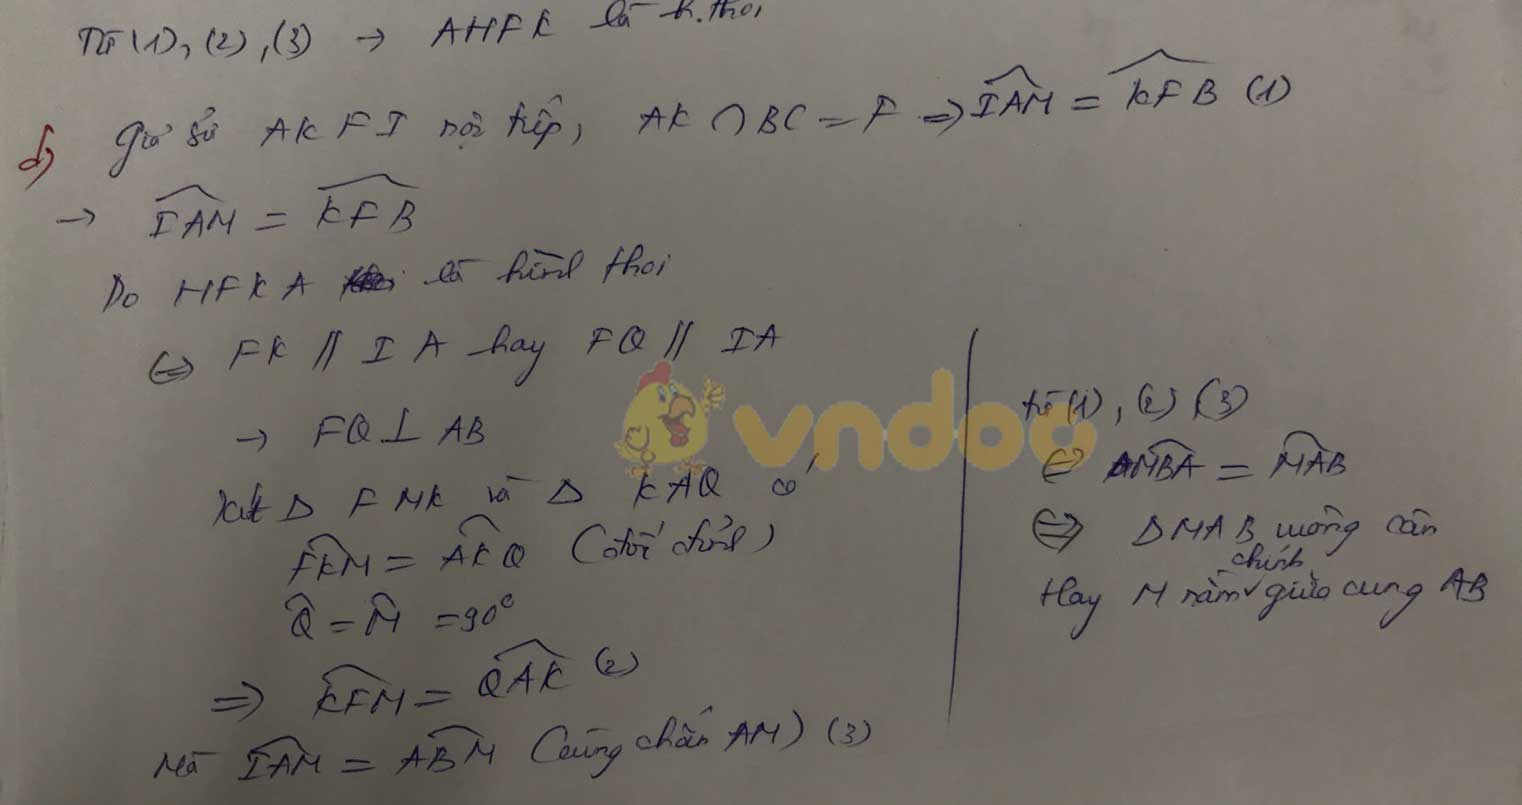 Từ (1), (2), (3) → AHFK là h.thoi
d) Giả sử AKFI nội tiếp, AK ∩ BC = F ⇒ \widehat{IAM} = \widehat{KFB} (1)
→ \widehat{IAM} = \widehat{KFB}
Do HFKA là hình thoi
⇔ FK // IA hay FQ // IA
→ FQ ⊥ AB
Xét Δ FMK và Δ KAQ có
\widehat{FKM} = \widehat{AKQ} (đối đỉnh)
\widehat{Q} = \widehat{M} = 90°
⇒ \widehat{KFM} = \widehat{QAK} (2)
Mà \widehat{IAM} = \widehat{ABM} (cùng chắn AM) (3)
từ (1), (2) (3)
⇔ \widehat{MBA} = \widehat{MAB}
⇔ ΔMAB vuông cân
Hay M nằm chính giữa cung AB
vndoc